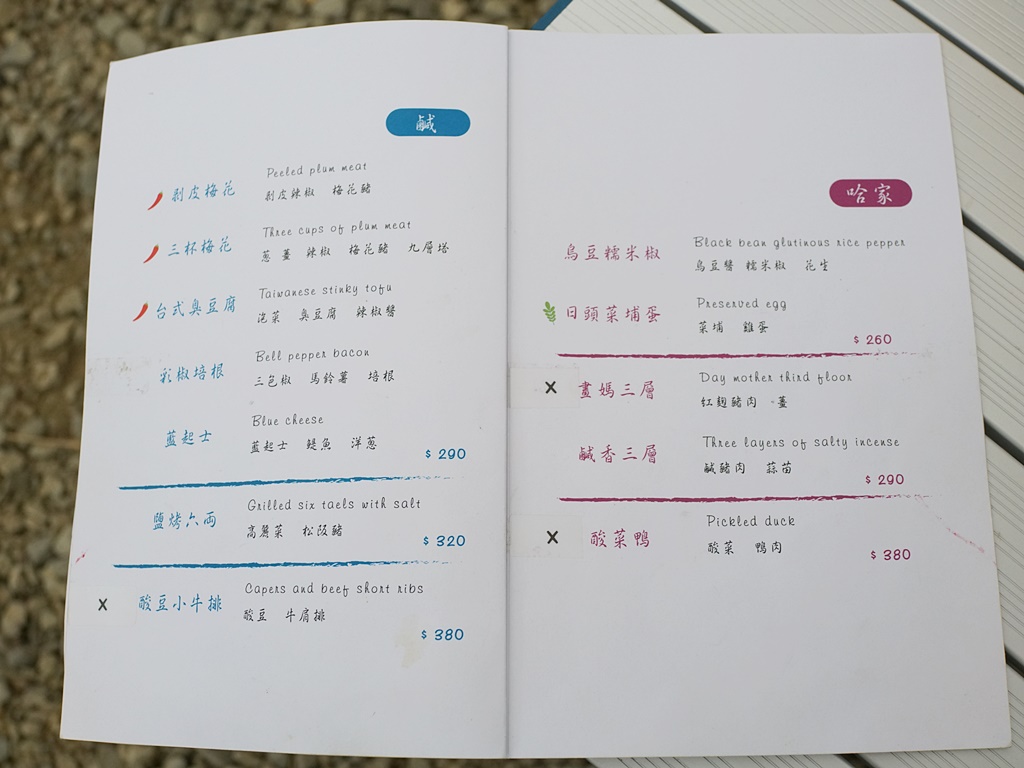 鹹
剥皮梅花
Peeled plum meat
剥皮辣椒 梅花豬
三杯梅花
Three cups of plum meat
蔥 薑 辣椒 梅花豬 九層塔
台式臭豆腐
Taiwanese stinky tofu
泡菜 臭豆腐 辣椒醬
彩椒培根
Bell pepper bacon
三色椒 馬鈴薯 培根
藍起士
Blue cheese
藍起士 鯷魚 洋蔥
$ 290
鹽烤六両
Grilled six taels with salt
高麗菜 松阪豬
$ 320
X 酸豆小牛排
Capers and beef short ribs
酸豆 牛肩排
$ 380
哈家
烏豆糯米椒
Black bean glutinous rice pepper
烏豆醬 糯米椒 花生
日頭菜埔蛋
Preserved egg
菜埔 雞蛋
$ 260
X 畫媽三層
Day mother third floor
紅麴豬肉 -薑
鹹香三層
Three layers of salty incense
鹹豬肉 蒜苗
$ 290
X 酸菜鴨
Pickled duck
酸菜 鴨肉
$ 380